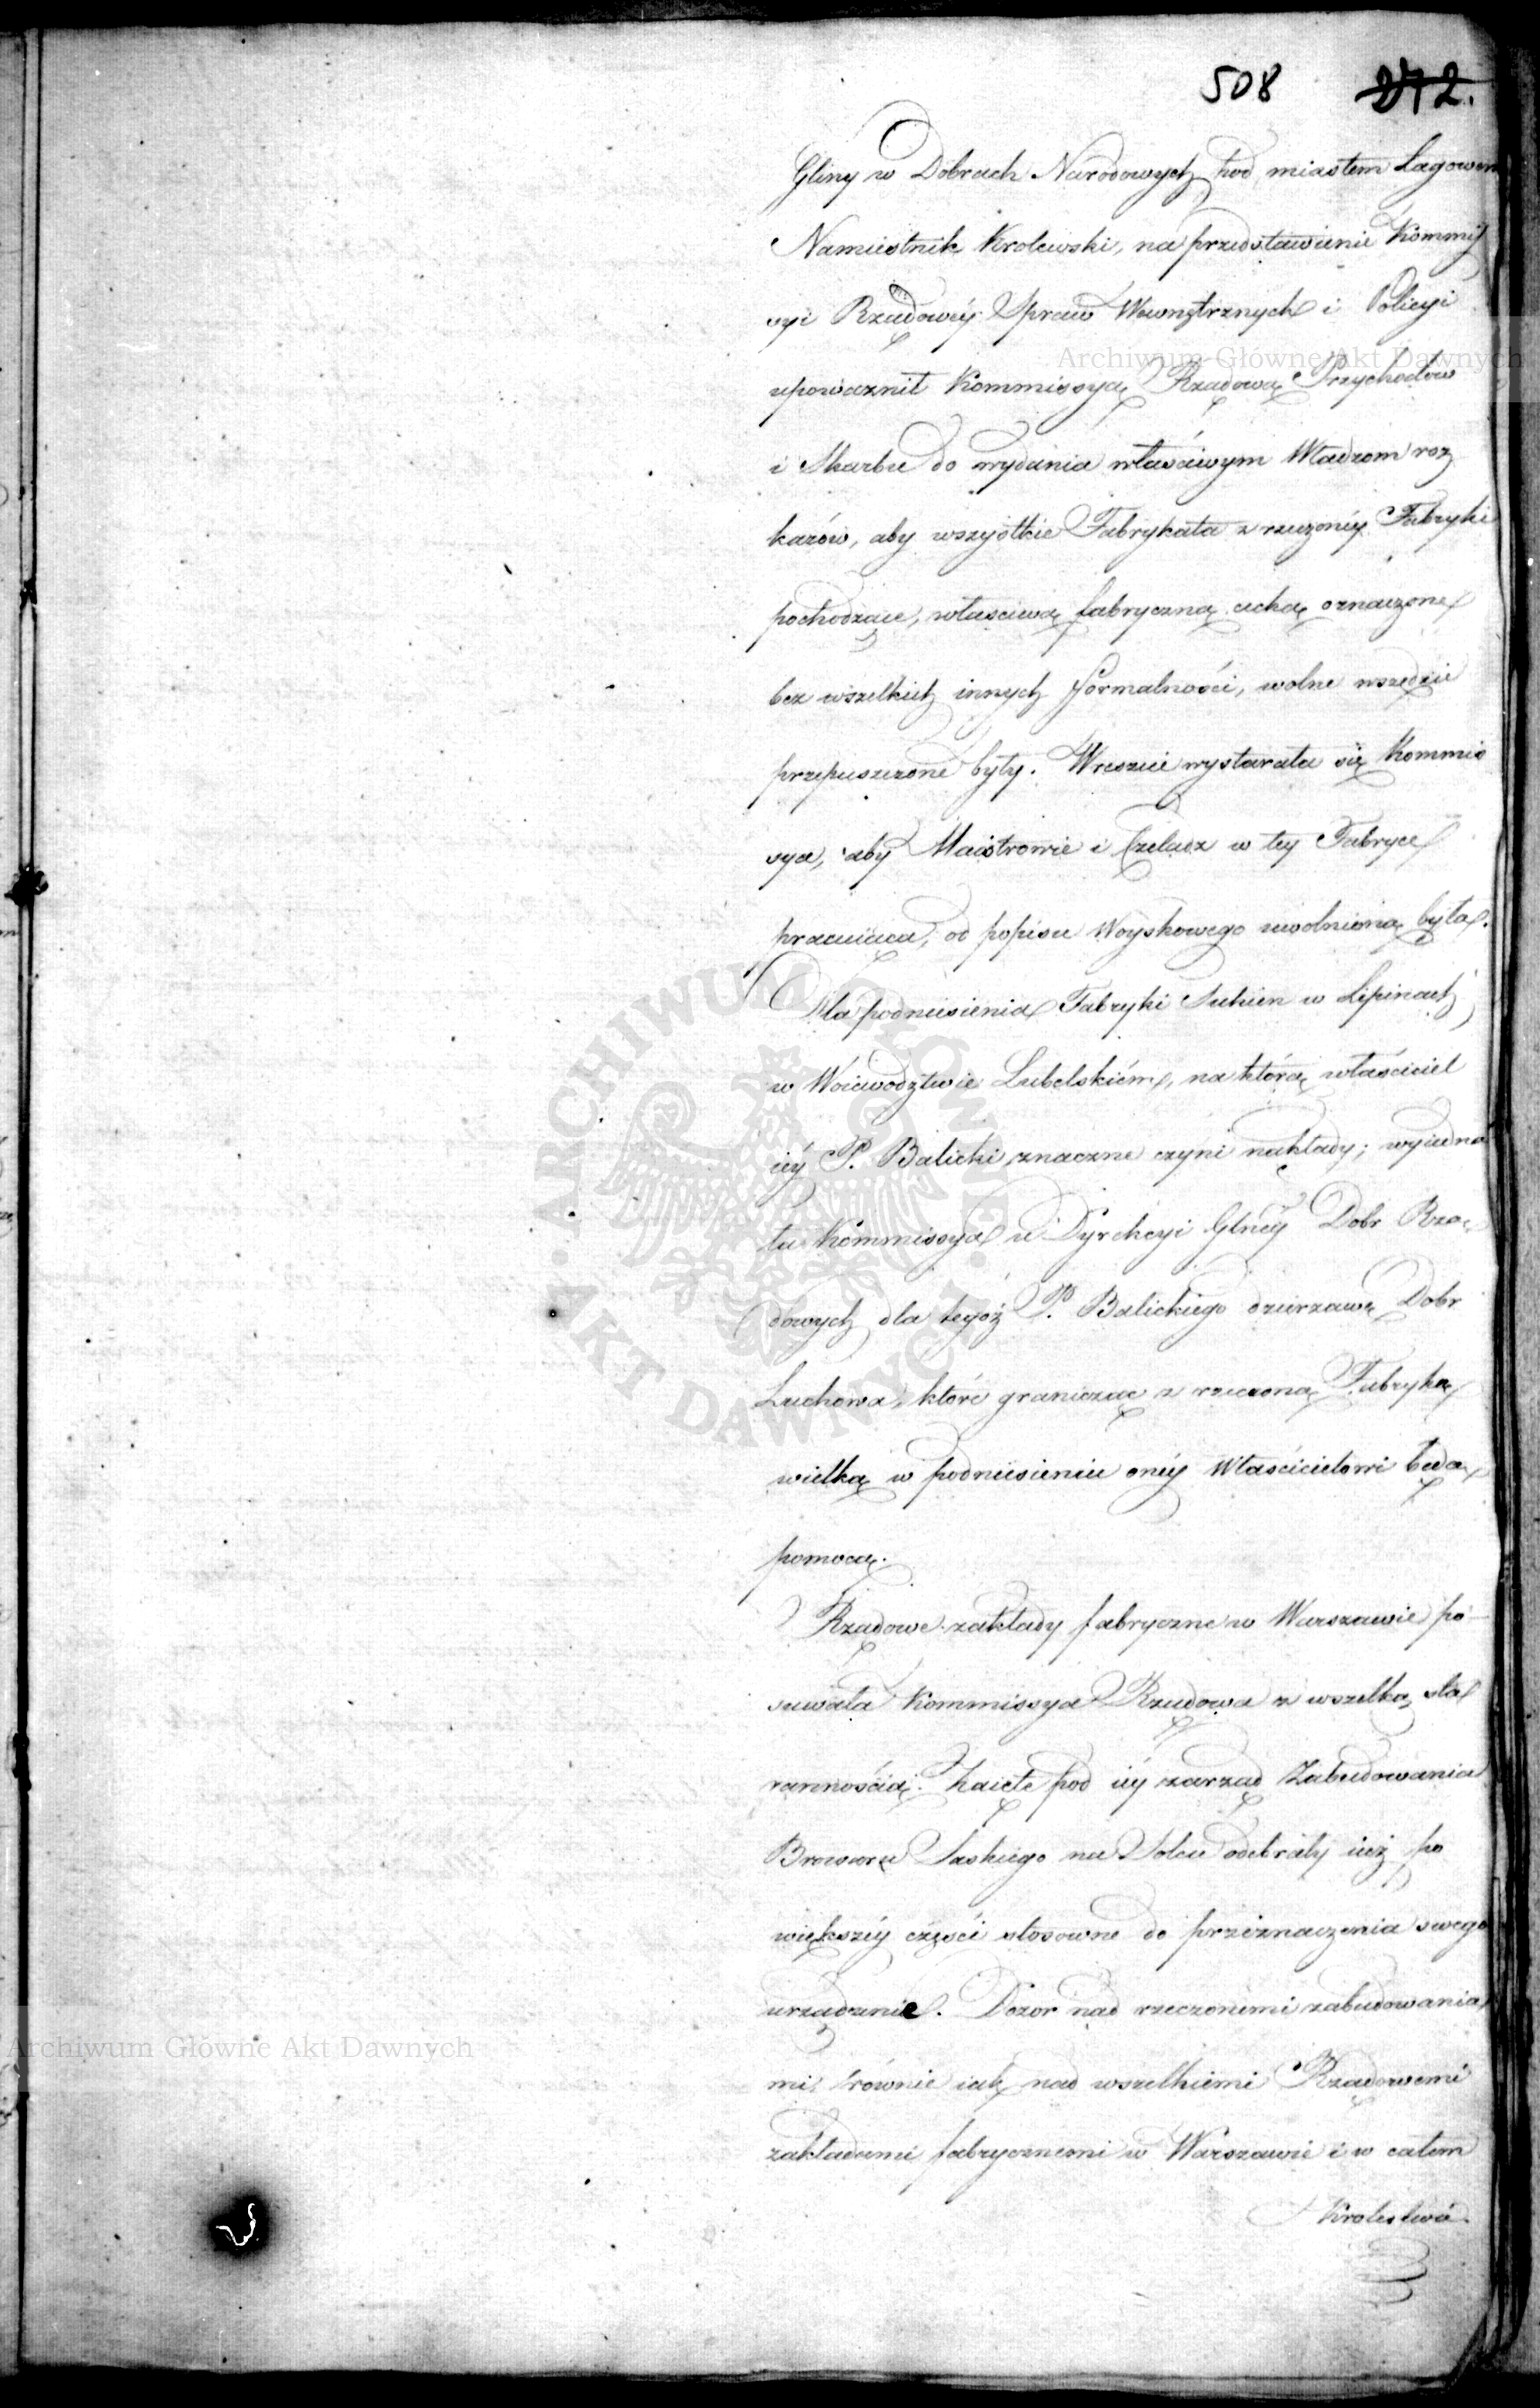 508 272.
Gliny w Dobrach Narodowych pod miastem Łagowem
Namiestnik Krolewski, na przedstawienie Kommis
syi Rządowéy Spraw Wewnętrznych i Policyi
upoważnił Kommissyą Rządową Przychodow
i Skarbu do wydania właściwym Władzom roz
kazów, aby wszystkie Fabrykata z rzeczonéy Fabryki
pochodzące, własciwą fabryczną cechą oznaczone
bez wszelkich innych formalności, wolne wszędzie
przepuszczone były. Wreszcie wystarała się Kommis
sya, aby Maistrowie i Czeladz w tey Fabryce
pracuiąca, od popisu Woyskowego uwolnioną była.
Dla podniesienia Fabryki Sukien w Lipinach
w Wóiewodztwie Lubelskiém, na którą właściciel
iéy P. Balicki znaczne czyni nakłady; wyiedna
ła Kommissya u Dyrekcyi Głnéy Dobr Rzą
dowych dla tegóż P. Balickiego dzierzawę Dobr
Luchowa, które granicząc z rzeczoną Fabryką
wielką w podniesieniu onéy Właścicielowi będą
pomocą.
Rządowe zakłady fabryczne w Warszawie po
suwała Kommissya Rządowa z wszelką sta
rannością. Zaięte pod iéy zarząd Zabudowania
Browaru Saskiego na Solcu odebrały iuż po
większéy części stosowne do przeznaczenia swego
urządzenie. Dozor nad rzeczonemi zabudowania
mi, równie iak nad wszelkiemi Rządowemi
zakładami fabrycznemi w Warszawie i w całem
Krolestwie
Archiwum Główne Akt Dawnych
Archiwum Główne Akt Dawnych
ARCHIWUM GŁÓWNE AKT DAWNYCH